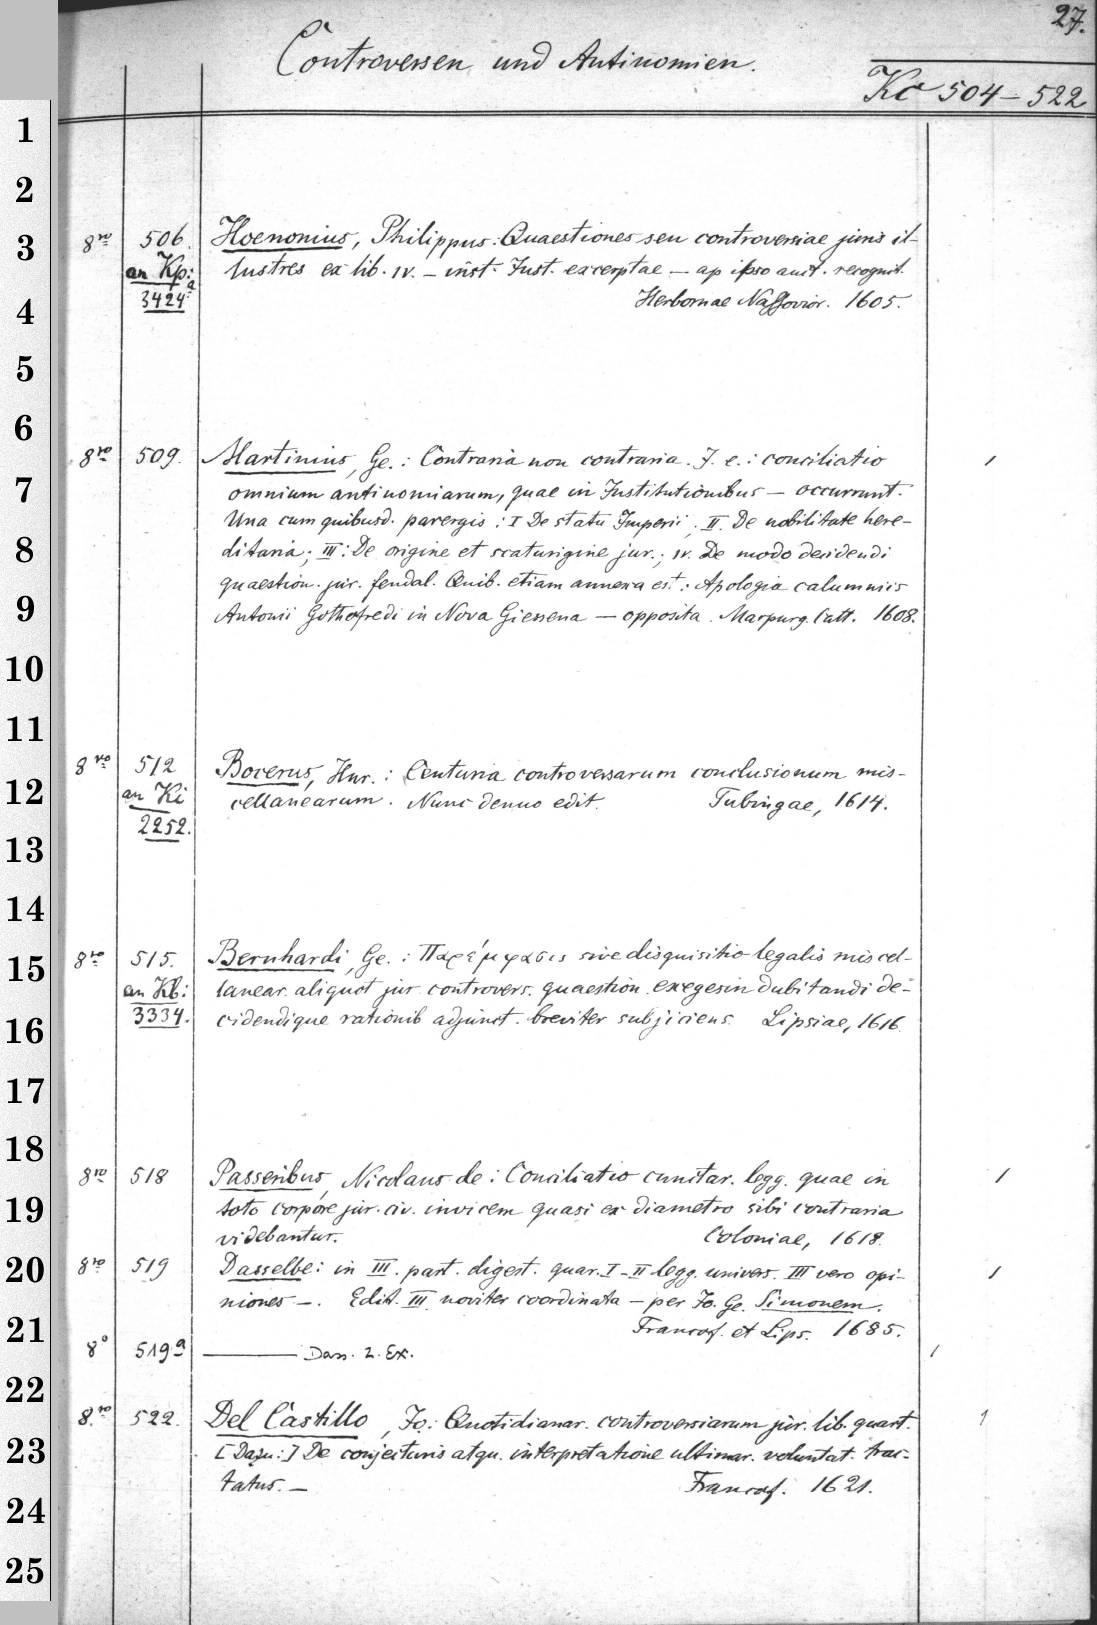 27.
Controversen und Antinomien.
Kc 504-522
1
2
3
4
5
6
7
8
9
10
11
12
13
14
15
16
17
18
19
20
21
22
23
24
25
8vo 506. Hoenonius, Philippus: Quaestiones seu controversiae juris il-
an Kp: lustres ex lib. IV. – inst. Just. excerptae – ap ipso auct. recognit.
3424a Herbornae Nassovior. 1605.
8vo 509. Martinius, Ge.: Contraria non contraria. J. e.: conciliatio
omnium antinomiarum, quae in Institutionibus – occurrunt.
Una cum quibusd. parergis: I De statu Imperii; II. De nobilitate here-
ditaria; III: De origine et scaturigine jur.; IV. De modo decidendi
quaestion. jur. feudal. Quib. etiam annexa est: Apologia calumniis
Antonii Gothofredi in Nova Giessena – opposita. Marpurg. Catt. 1608.
8vo 512 Bocerus, Hnr.: Centuria controversarum conclusionum mis-
an Ki cellanearum. Nunc denuo edit. Tubingae, 1614.
2252.
8vo 515. Bernhardi, Ge.: Παρέμφασις sive disquisitio legalis miscel-
an Kb: lanear. aliquot jur controvers. quaestion. exegesin dubitandi de-
3334. cidendique rationib adjunct. breviter subjiciens Lipsiae, 1616.
8vo 518 Passeribus, Nicolaus de: Conciliatio cunctar. legg. quae in
toto corpore jur. civ. invicem quasi ex diametro sibi contraria
videbantur. Coloniae, 1618.
8vo 519 Dasselbe: in III. part. digest. quar. I-II legg. univers. III vero opi-
niones –. Edit. III noviter coordinata – per Jo. Ge. Simonem.
Francof. et Lips. 1685.
8° 519a ——— Dass. 2. Ex.
8.vo 522. Del Castillo, Jo.: Quotidianar. controversiarum jur. lib. quart.
[Dazu:] De conjecturis atqu. interpretatione ultimar. voluntat. trac-
tatus. – Francof. 1621.